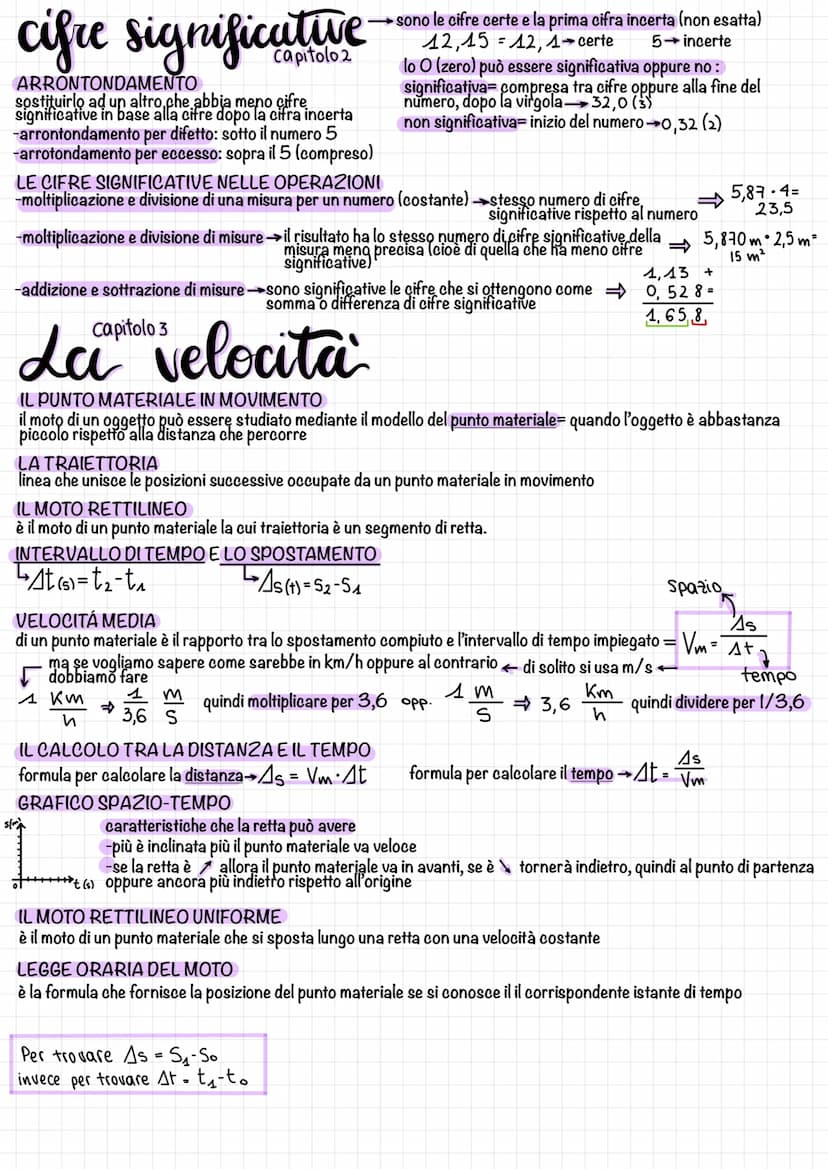 cifre significative
capitolo 2
→ sono le cifre certe e la prima cifra incerta (non esatta)
12,15 = 12,1 → certe 5 → incerte
lo 0 (zero) può essere significativa oppure no :
significativa= compresa tra cifre oppure alla fine del
numero, dopo la virgola → 32,0 (3)
non significativa= inizio del numero → 0,32 (2)
ARRONTONDAMENTO
sostituirlo ad un altro che abbia meno cifre
significative in base alla cifre dopo la cifra incerta
-arrontondamento per difetto: sotto il numero 5
-arrotondamento per eccesso: sopra il 5 (compreso)
LE CIFRE SIGNIFICATIVE NELLE OPERAZIONI
-moltiplicazione e divisione di una misura per un numero (costante) → stesso numero di cifre
significative rispetto al numero
⇒ 5,87 · 4=
23,5
-moltiplicazione e divisione di misure → il risultato ha lo stesso numero di cifre significative della
misura meno precisa (cioè di quella che ha meno cifre
significative)
⇒ 5,870 m · 2,5 m=
15 m²
-addizione e sottrazione di misure → sono significative le cifre che si ottengono come
somma o differenza di cifre significative
⇒ 1,13 +
0,528 =
1,658
Capitolo 3
La velocità
IL PUNTO MATERIALE IN MOVIMENTO
il moto di un oggetto può essere studiato mediante il modello del punto materiale= quando l'oggetto è abbastanza
piccolo rispetto alla distanza che percorre
LA TRAIETTORIA
linea che unisce le posizioni successive occupate da un punto materiale in movimento
IL MOTO RETTILINEO
è il moto di un punto materiale la cui traiettoria è un segmento di retta.
INTERVALLO DI TEMPO E LO SPOSTAMENTO
Δt(s)=t₂-t₁ Δs(t)=s₂-s₁
VELOCITÁ MEDIA
di un punto materiale è il rapporto tra lo spostamento compiuto e l'intervallo di tempo impiegato = Vm = Δs/Δt
spazio
tempo
ma se vogliamo sapere come sarebbe in km/h oppure al contrario ← di solito si usa m/s ←
dobbiamo fare
1 Km/h ⇒ 1/3,6 m/s quindi moltiplicare per 3,6 opp. 1 m/s ⇒ 3,6 Km/h quindi dividere per 1/3,6
IL CALCOLO TRA LA DISTANZA E IL TEMPO
formula per calcolare la distanza → Δs = Vm · Δt formula per calcolare il tempo → Δt = Δs/Vm
GRAFICO SPAZIO-TEMPO
s(m)
0
t (s)
caratteristiche che la retta può avere
-più è inclinata più il punto materiale va veloce
-se la retta è ↗ allora il punto materiale va in avanti, se è ↘ tornerà indietro, quindi al punto di partenza
oppure ancora più indietro rispetto all'origine
IL MOTO RETTILINEO UNIFORME
è il moto di un punto materiale che si sposta lungo una retta con una velocità costante
LEGGE ORARIA DEL MOTO
è la formula che fornisce la posizione del punto materiale se si conosce il il corrispondente istante di tempo
Per trovare Δs = S₁-S₀
invece per trovare Δt = t₁-t₀